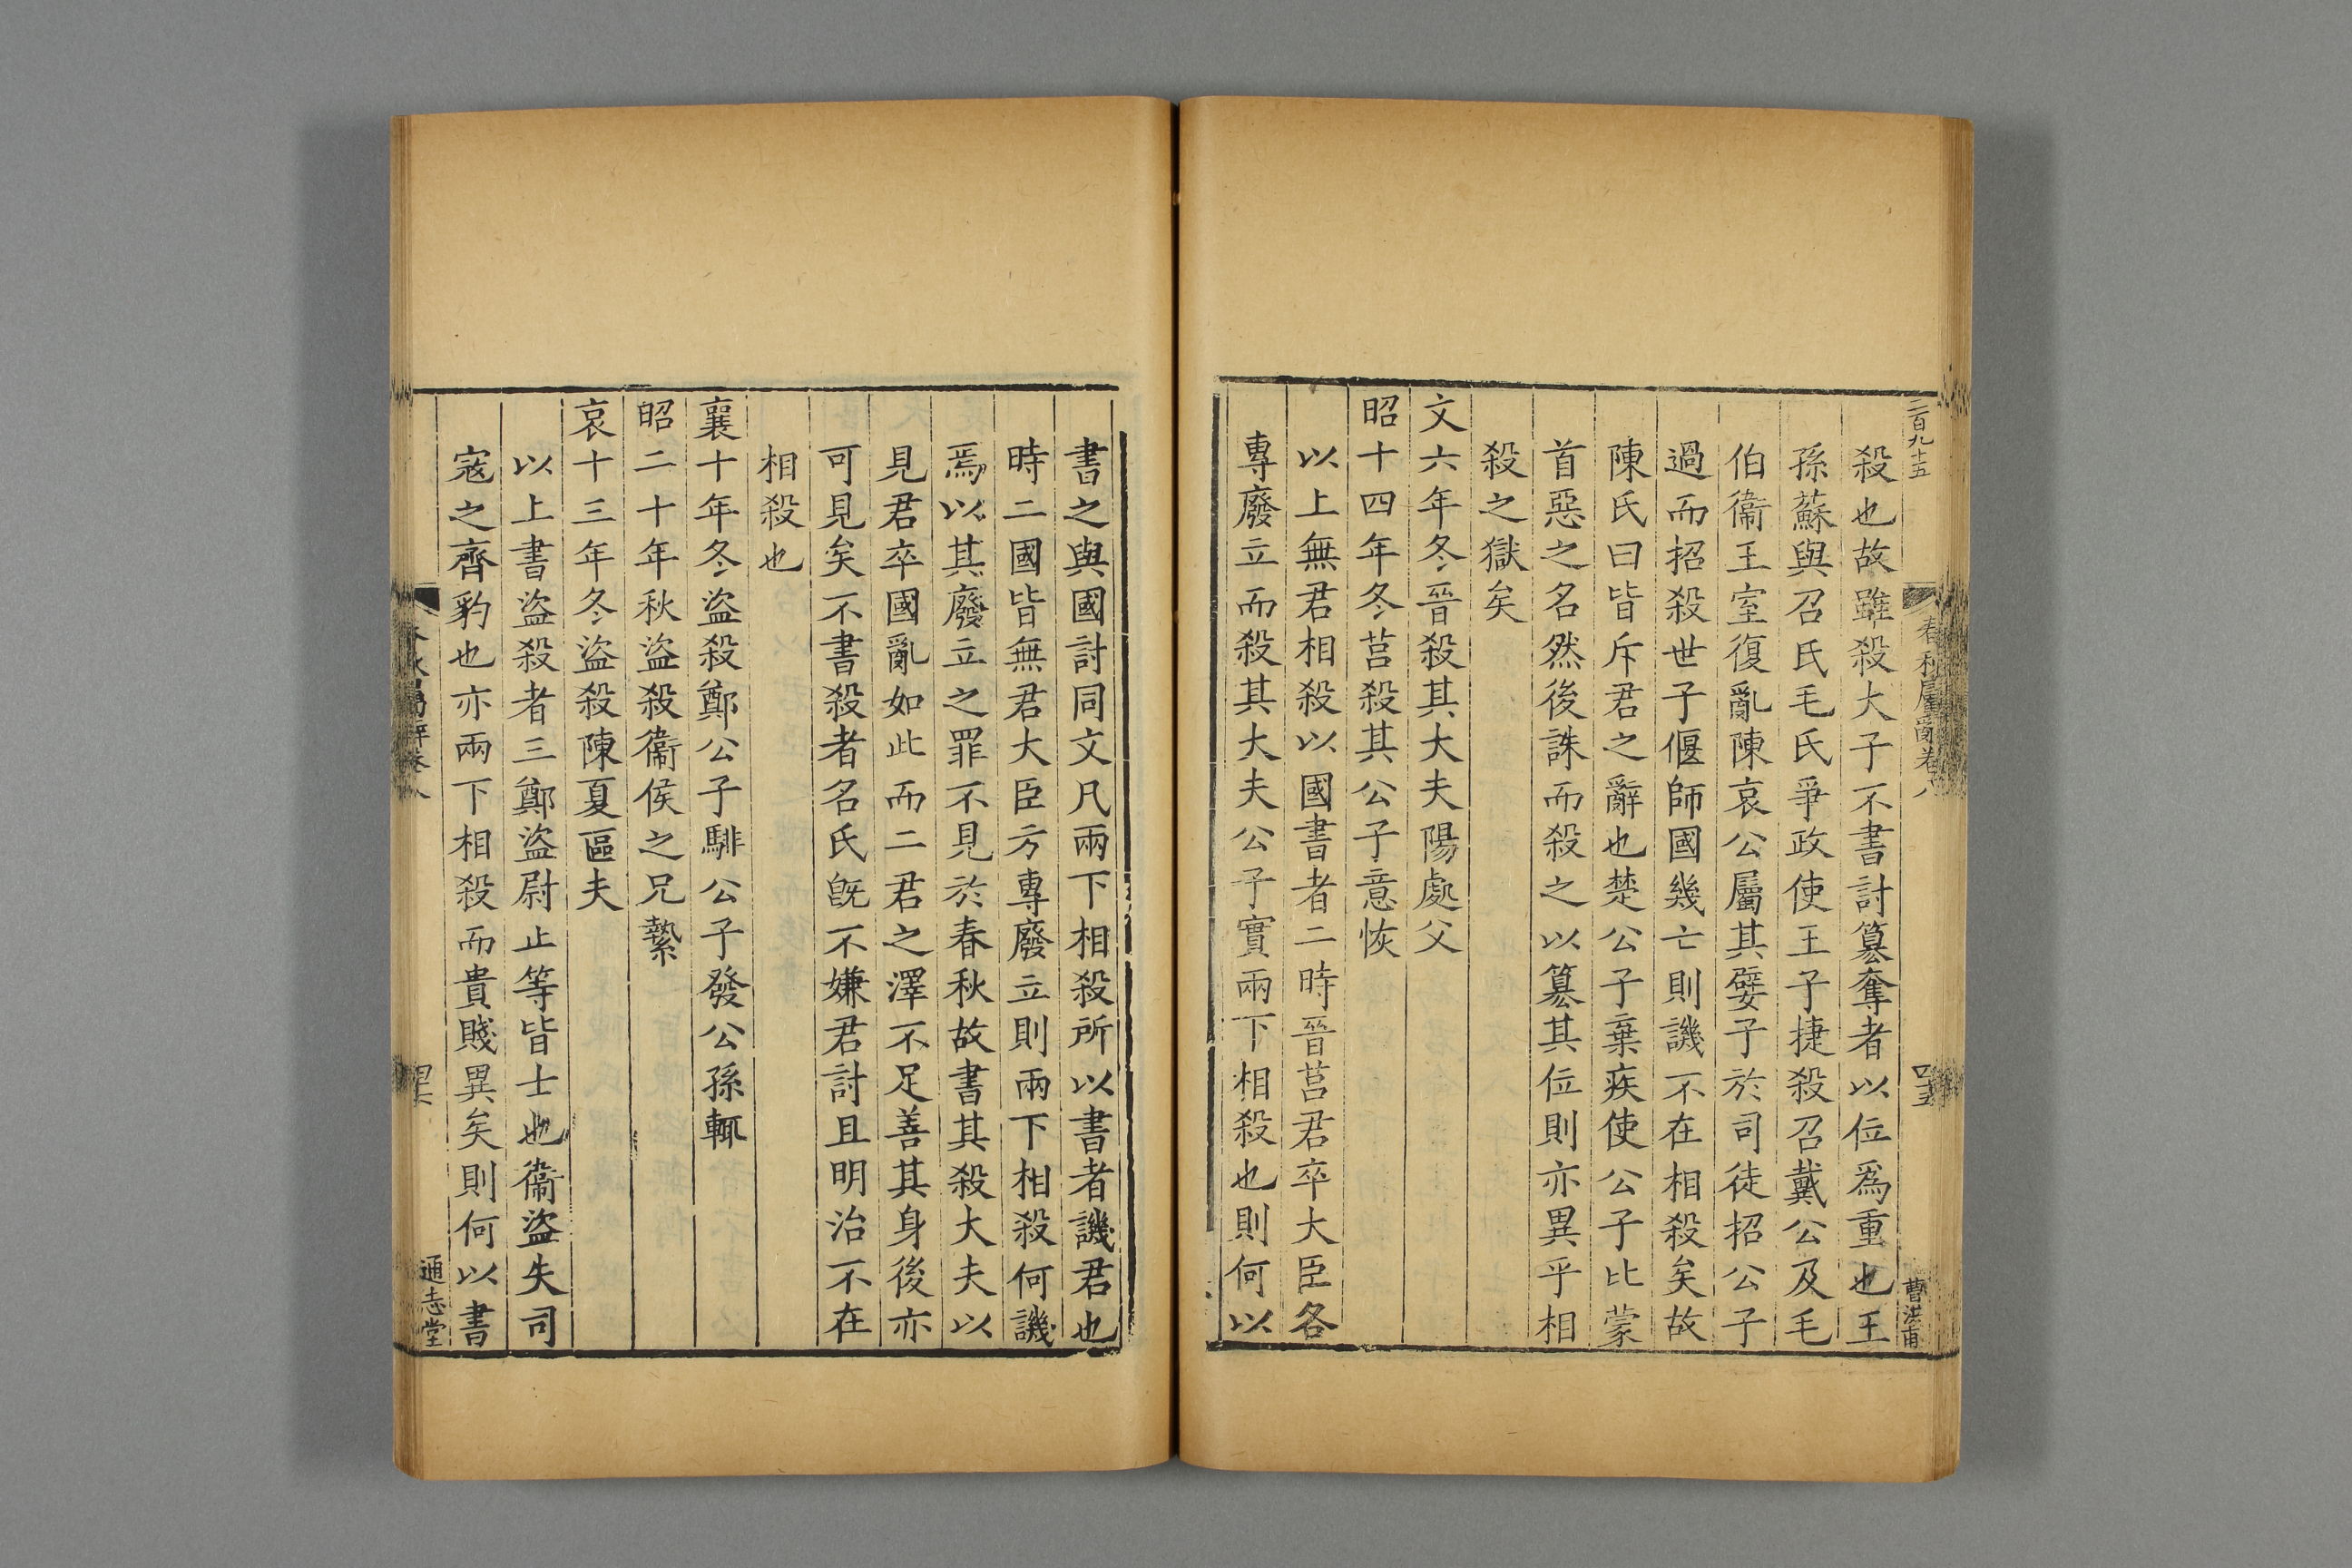 二百九十五
春秋屬辭卷八
四十五
曹洪甫
殺也故雖殺大子不書討篡奪者以位爲重也王
孫蘇與召氏毛氏爭政使王子捷殺召戴公及毛
伯衞王室復亂陳哀公屬其嬖子於司徒招公子
過而招殺世子偃師國幾亡則譏不在相殺矣故
陳氏曰皆斥君之辭也楚公子棄疾使公子比蒙
首惡之名然後誅而殺之以篡其位則亦異乎相
殺之獄矣
文六年冬晉殺其大夫陽處父
昭十四年冬莒殺其公子意恢
以上無君相殺以國書者二時晉莒君卒大臣各
專廢立而殺其大夫公子實兩下相殺也則何以
書之與國討同文凡兩下相殺所以書者譏君也
時二國皆無君大臣方專廢立則兩下相殺何譏
焉以其廢立之罪不見於春秋故書其殺大夫以
見君卒國亂如此而二君之澤不足善其身後亦
可見矣不書殺者名氏旣不嫌君討且明治不在
相殺也
襄十年冬盜殺鄭公子騑公子發公孫輒
昭二十年秋盜殺衞侯之兄縶
哀十三年冬盜殺陳夏區夫
以上書盜殺者三鄭盜尉止等皆士也衞盜失司
寇之齊豹也亦兩下相殺而貴賤異矣則何以書
通志堂